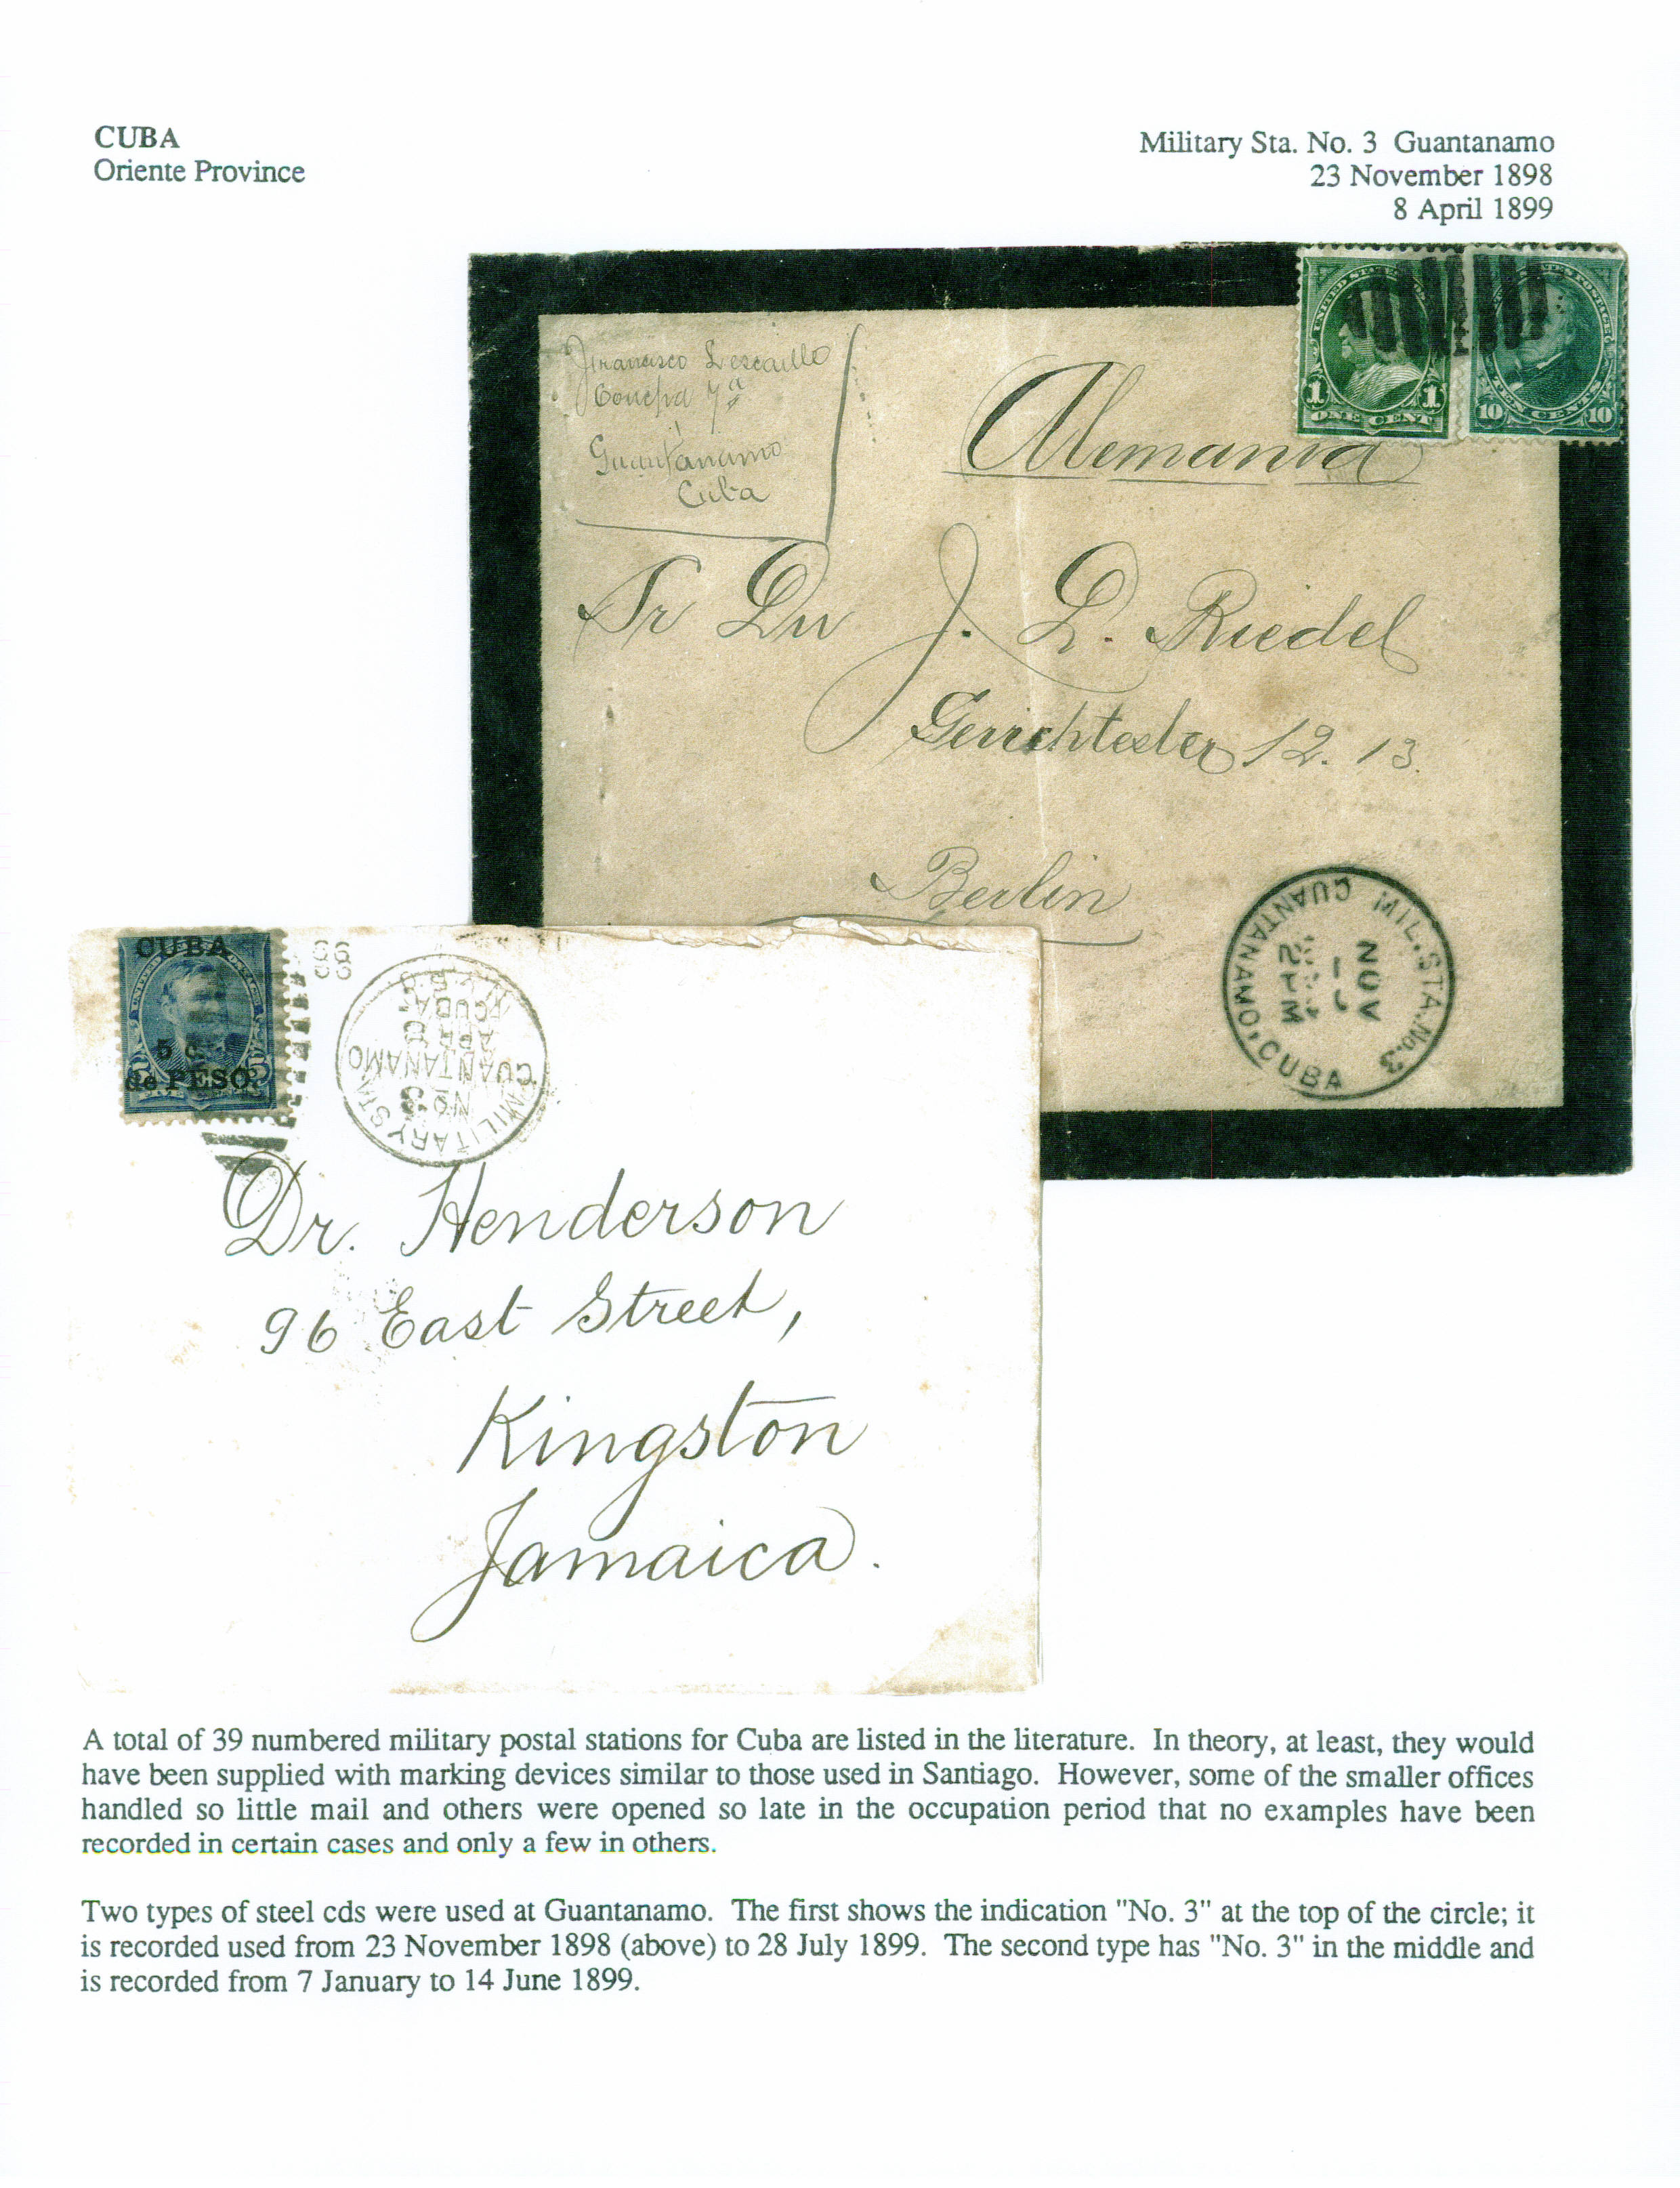 CUBA
Oriente Province
Military Sta. No. 3 Guantanamo
23 November 1898
8 April 1899
Guantanamo
Cuba
Alemania
J. L. Riedel
12. 13.
Berlin
1 ONE CENT 1
10 TEN CENTS 10
MIL. STA. No. 3
GUANTANAMO, CUBA
NOV
CUBA
5 c.
de PESO.
MILITARY STA
No
3
GUANTANAMO
APR 8
CUBA
Dr. Henderson
96 East Street,
Kingston
Jamaica.
A total of 39 numbered military postal stations for Cuba are listed in the literature. In theory, at least, they would
have been supplied with marking devices similar to those used in Santiago. However, some of the smaller offices
handled so little mail and others were opened so late in the occupation period that no examples have been
recorded in certain cases and only a few in others.
Two types of steel cds were used at Guantanamo. The first shows the indication "No. 3" at the top of the circle; it
is recorded used from 23 November 1898 (above) to 28 July 1899. The second type has "No. 3" in the middle and
is recorded from 7 January to 14 June 1899.